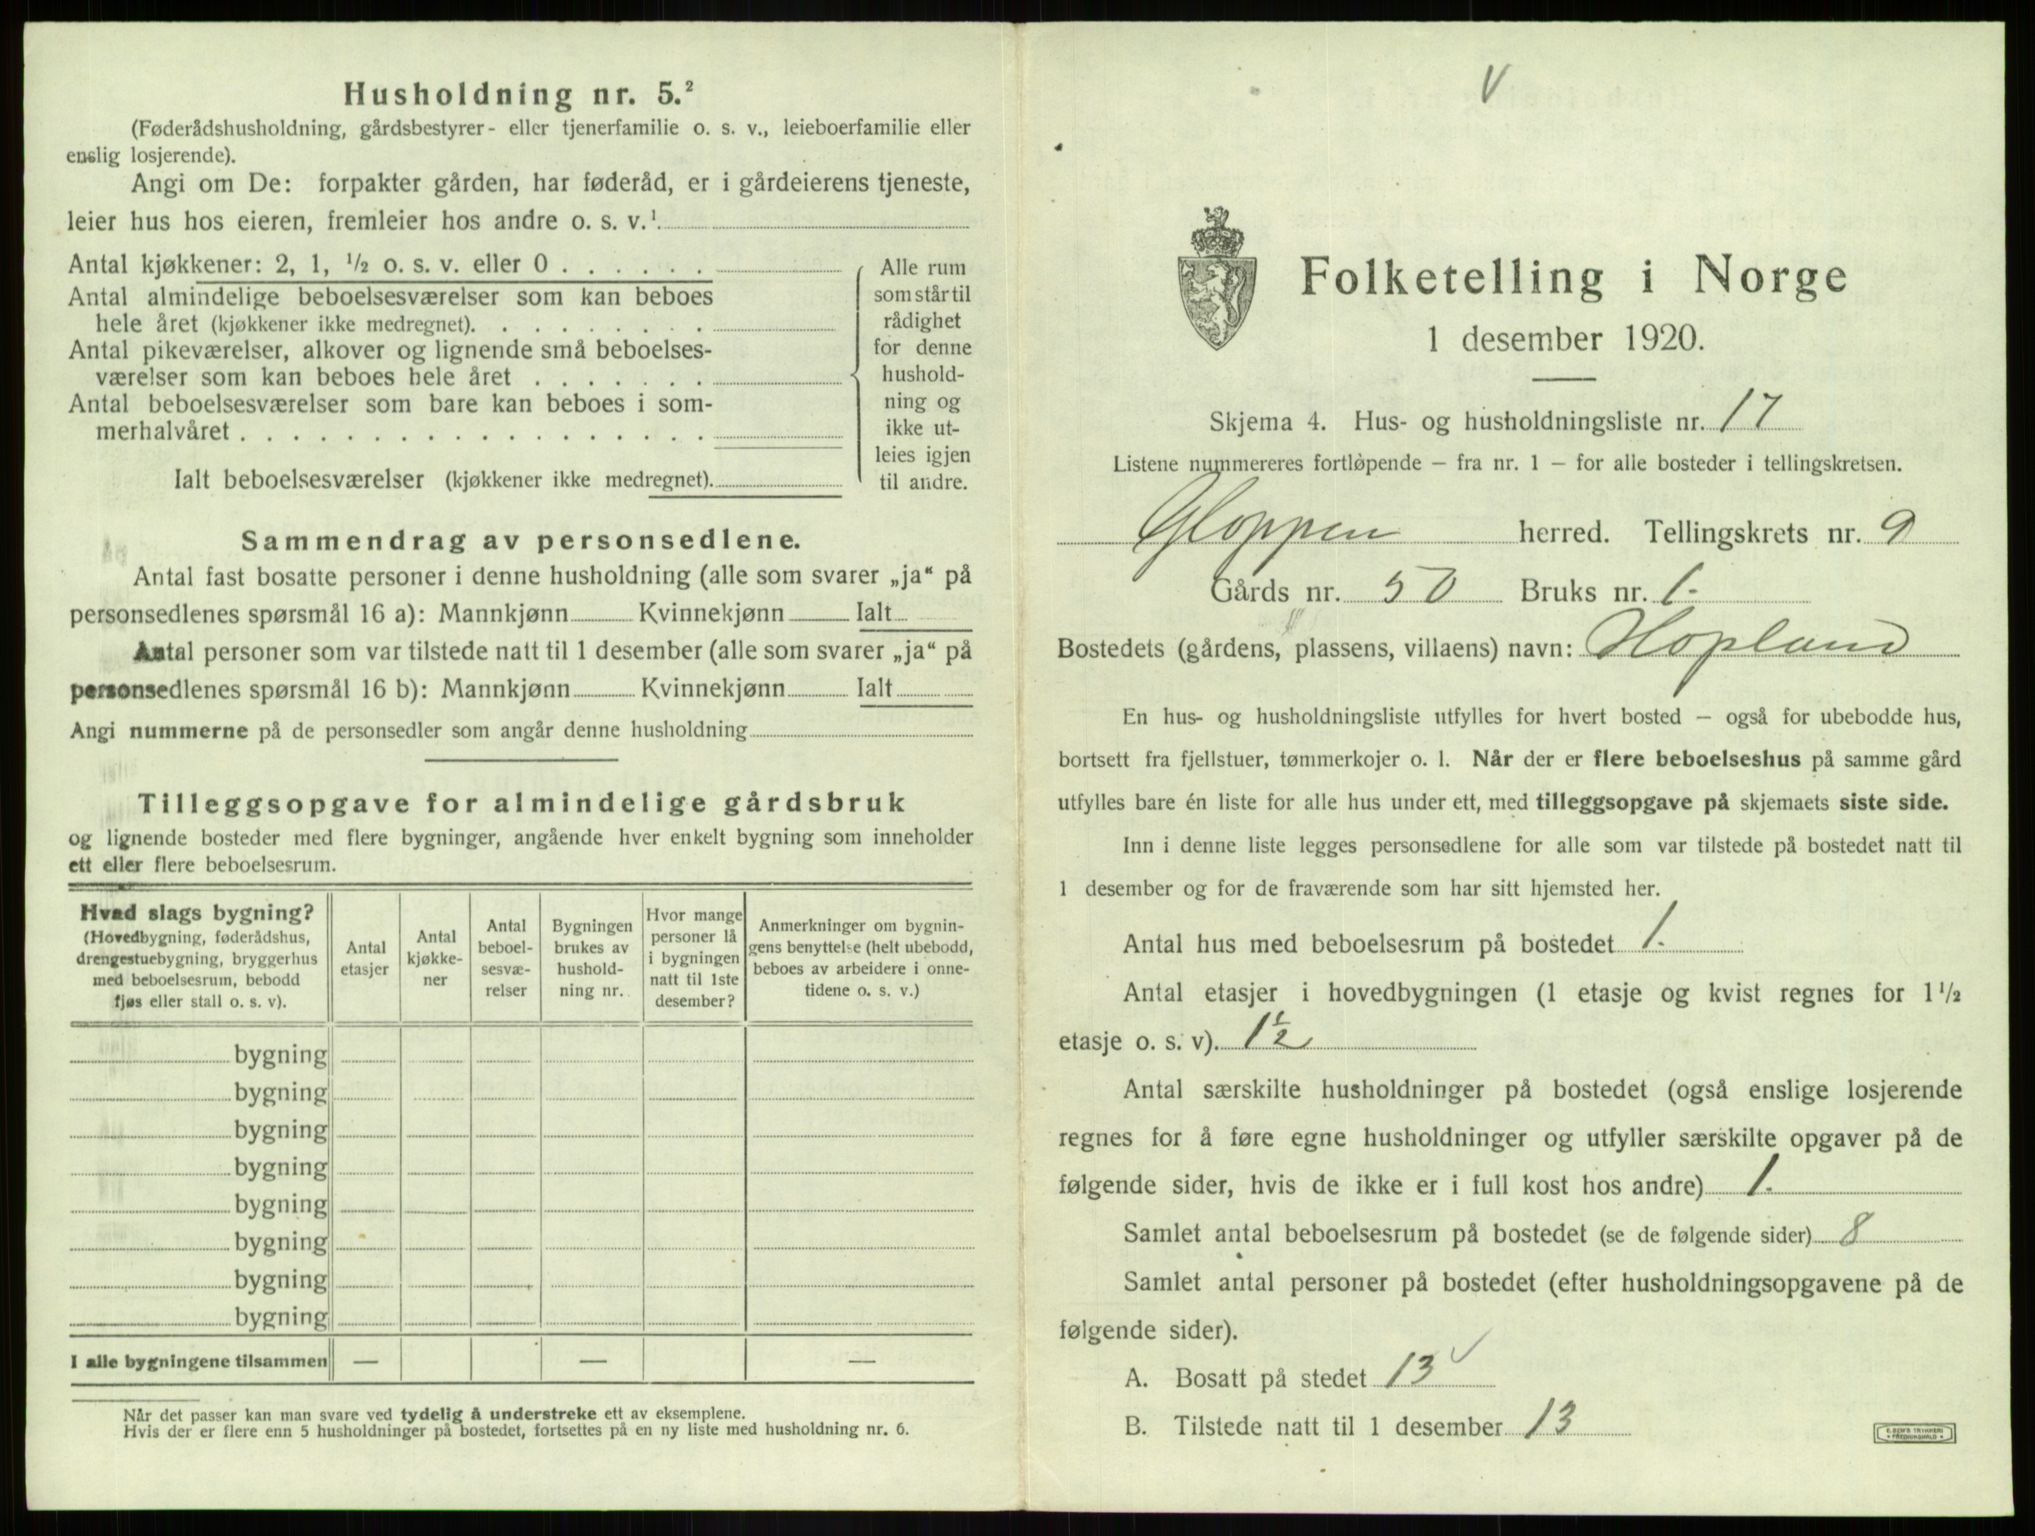 Husholdning nr. 5.²
(Føderådshusholdning, gårdsbestyrer- eller tjenerfamilie o. s. v., leieboerfamilie eller
enslig losjerende).
Angi om De: forpakter gården, har føderåd, er i gårdeierens tjeneste,
leier hus hos eieren, fremleier hos andre o. s. v.¹
Antal kjøkkener: 2, 1, ½ o. s. v. eller 0 . . . . . .
Antal almindelige beboelsesværelser som kan beboes
hele året (kjøkkener ikke medregnet). . . . . . . . .
Antal pikeværelser, alkover og lignende små beboelses-
værelser som kan beboes hele året . . . . . . .
Antal beboelsesværelser som bare kan beboes i som-
merhalvåret . . . . . . . . . . . . . . . . . .
Ialt beboelsesværelser (kjøkkener ikke medregnet).
Alle rum
som står til
rådighet
for denne
hushold-
ning og
ikke ut-
leies igjen
til andre.
Sammendrag av personsedlene.
Antal fast bosatte personer i denne husholdning (alle som svarer „ja“ på
personsedlenes spørsmål 16 a): Mannkjønn Kvinnekjønn Ialt
Antal personer som var tilstede natt til 1 desember (alle som svarer „ja“ på
personsedlenes spørsmål 16 b): Mannkjønn Kvinnekjønn Ialt
Angi nummerne på de personsedler som angår denne husholdning
Tilleggsopgave for almindelige gårdsbruk
og lignende bosteder med flere bygninger, angående hver enkelt bygning som inneholder
ett eller flere beboelsesrum.
Hvad slags bygning?
(Hovedbygning, føderådshus,
drengestuebygning, bryggerhus
med beboelsesrum, bebodd
fjøs eller stall o. s. v).
Antal
etasjer
Antal
kjøkke-
ner
Antal
beboel-
sesvæ-
relser
Bygningen
brukes av
hushold-
ning nr.
Hvor mange
personer lå
i bygningen
natt til 1ste
desember?
Anmerkninger om bygnin-
gens benyttelse (helt ubebodd,
beboes av arbeidere i onne-
tidene o. s. v.)
bygning
bygning
bygning
bygning
bygning
bygning
bygning
bygning
I alle bygningene tilsammen — — —
Når det passer kan man svare ved tydelig å understreke ett av eksemplene.
Hvis der er flere enn 5 husholdninger på bostedet, fortsettes på en ny liste med husholdning nr. 6.
V
Folketelling i Norge
1 desember 1920.
Skjema 4. Hus- og husholdningsliste nr. 17
Listene nummereres fortløpende – fra nr. 1 – for alle bosteder i tellingskretsen.
Gloppen herred. Tellingskrets nr. 9
Gårds nr. 50 Bruks nr. 1.
Bostedets (gårdens, plassens, villaens) navn: Hopland
En hus- og husholdningsliste utfylles for hvert bosted – også for ubebodde hus,
bortsett fra fjellstuer, tømmerkojer o. l. Når der er flere beboelseshus på samme gård
utfylles bare én liste for alle hus under ett, med tilleggsopgave på skjemaets siste side.
Inn i denne liste legges personsedlene for alle som var tilstede på bostedet natt til
1 desember og for de fraværende som har sitt hjemsted her.
Antal hus med beboelsesrum på bostedet 1.
Antal etasjer i hovedbygningen (1 etasje og kvist regnes for 1½
etasje o. s. v). 1½
Antal særskilte husholdninger på bostedet (også enslige losjerende
regnes for å føre egne husholdninger og utfyller særskilte opgaver på de
følgende sider, hvis de ikke er i full kost hos andre) 1.
Samlet antal beboelsesrum på bostedet (se de følgende sider) 8
Samlet antal personer på bostedet (efter husholdningsopgavene på de
følgende sider).
A. Bosatt på stedet 13 ✓
B. Tilstede natt til 1 desember 13